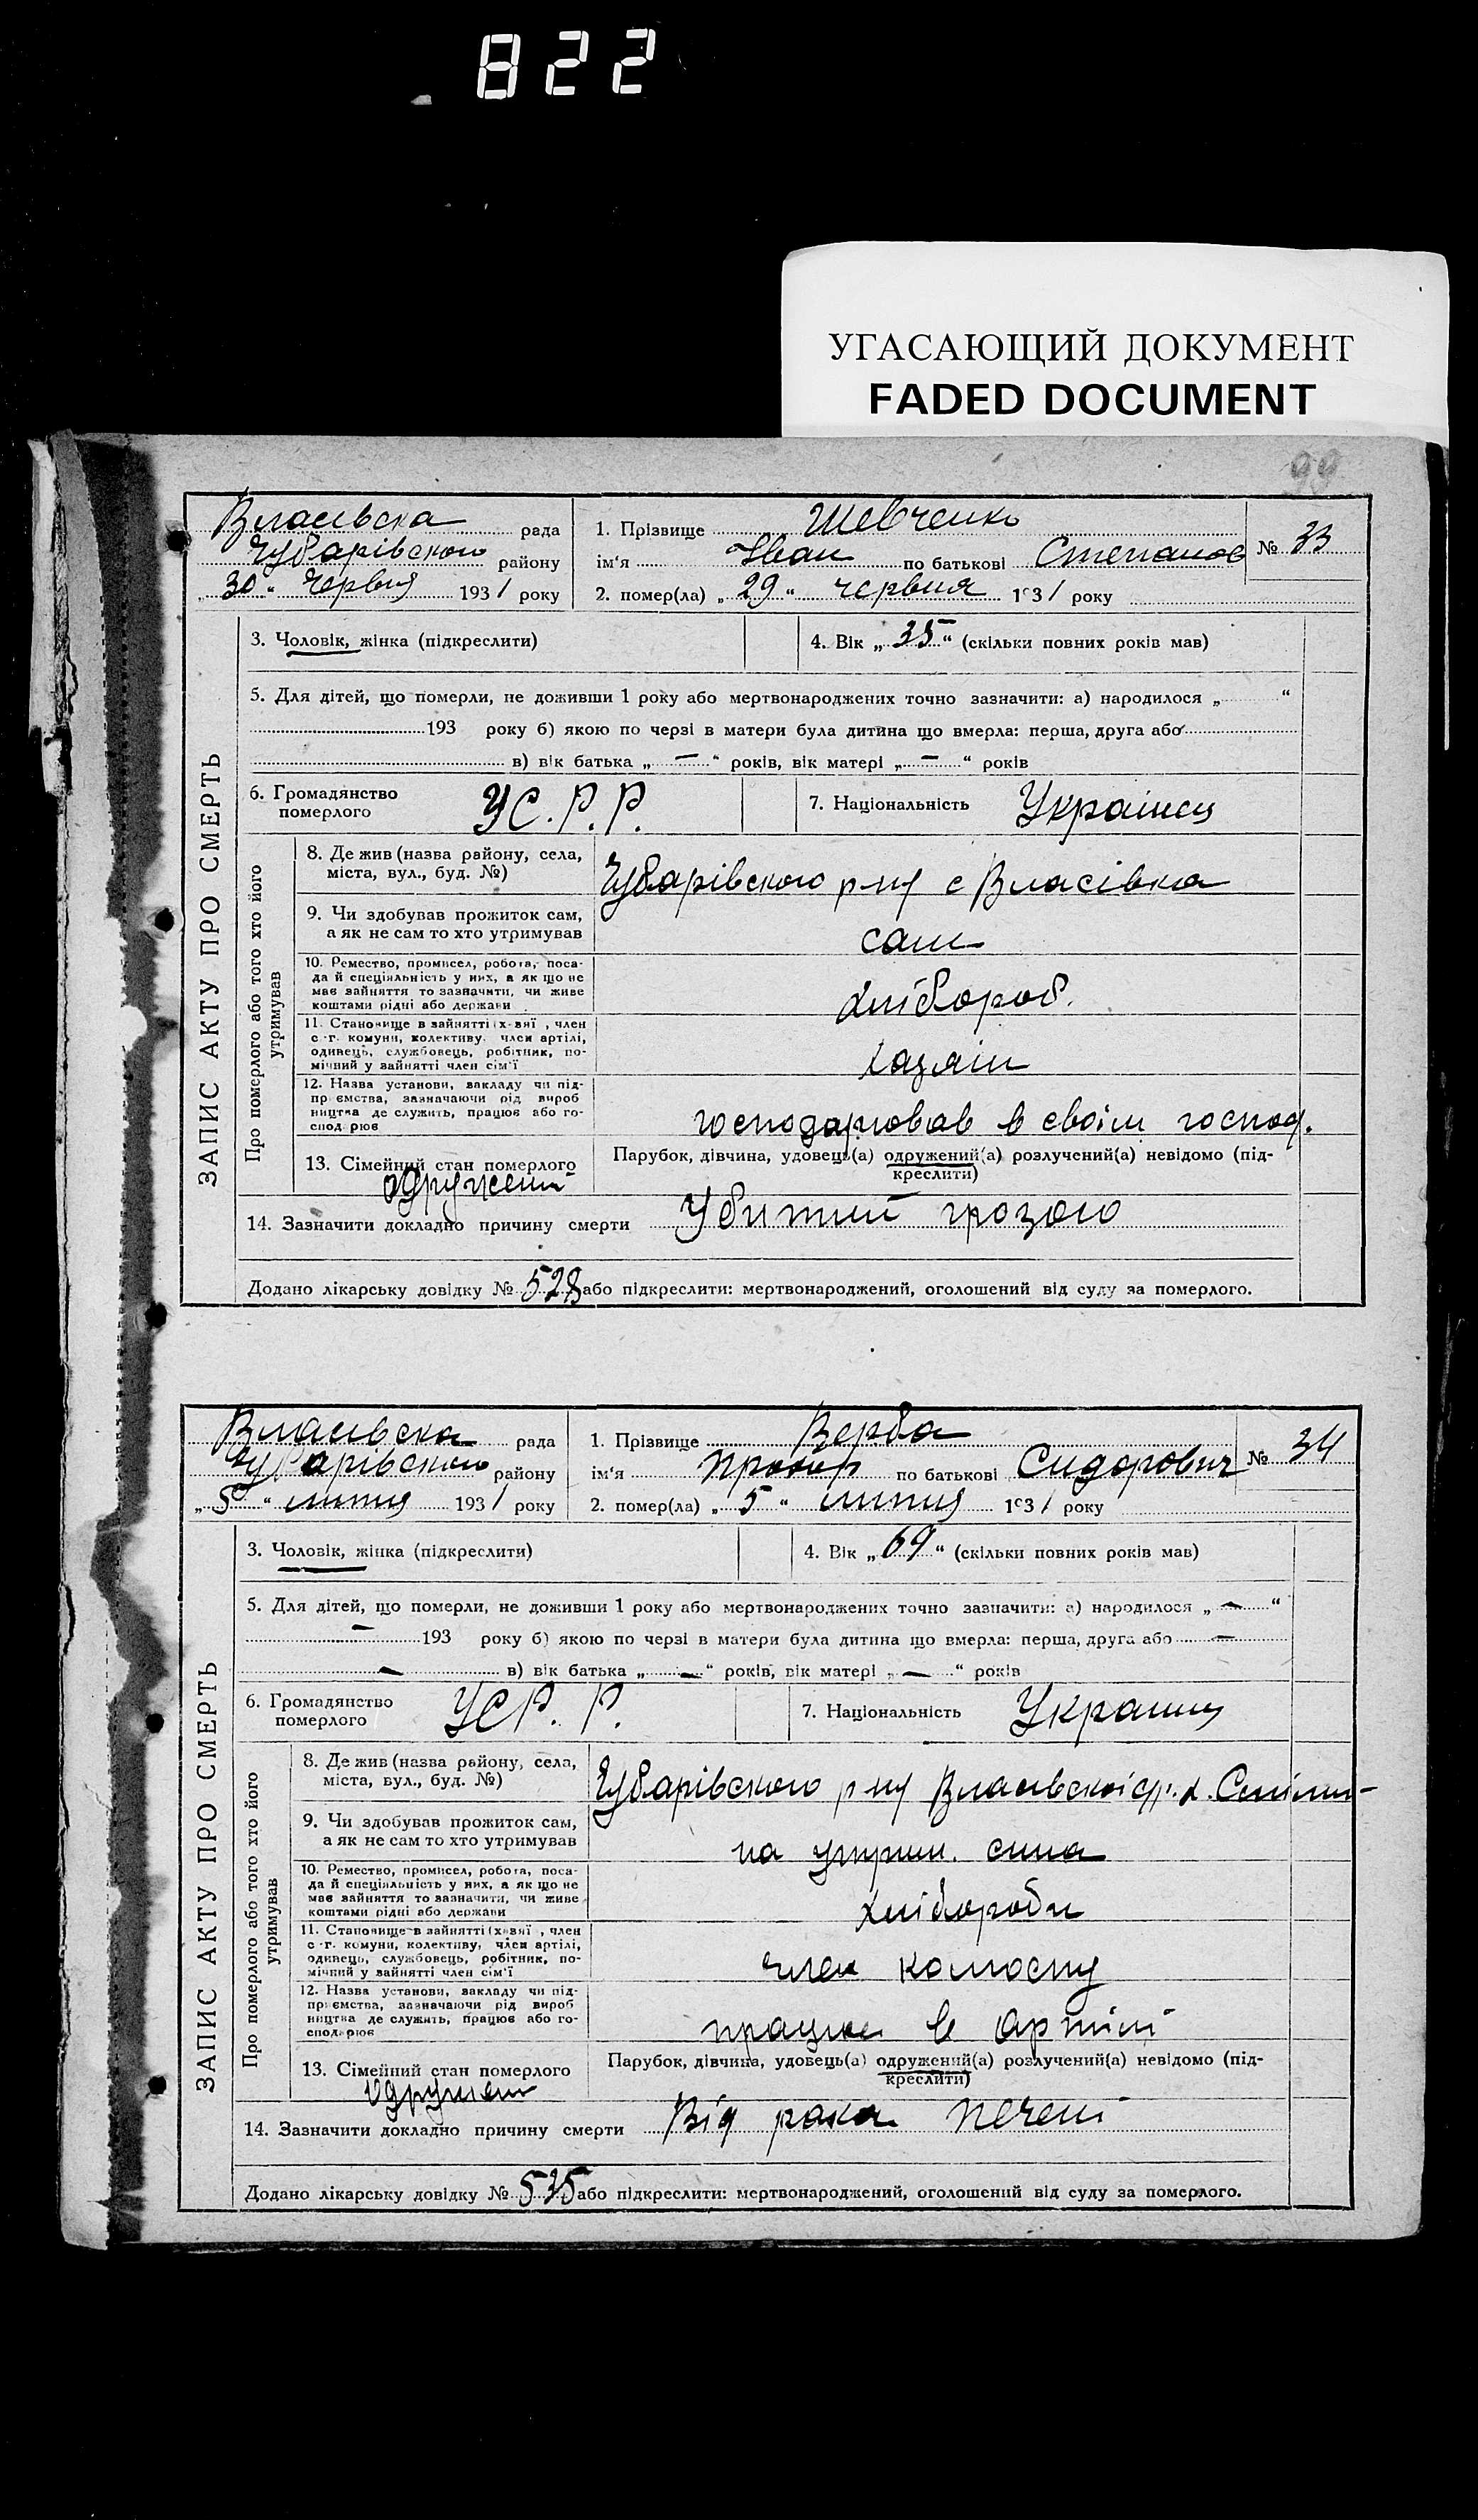 822
УГАСАЮЩИЙ ДОКУМЕНТ
FADED DOCUMENT
99
ЗАПИС АКТУ ПРО СМЕРТЬ
Власівска рада
Чубарівского району
„30“ Червня 1931 року
1. Прізвище Шевченко
ім'я Іван по батькові Степанов
№ 33
2. помер(ла) „29“ червня 1931 року
3. Чоловік, жінка (підкреслити)
4. Вік „35“ (скільки повних років мав)
5. Для дітей, що померли, не доживши 1 року або мертвонароджених точно зазначити: а) народилося „ “
193 року б) якою по черзі в матери була дитина що вмерла: перша, друга або
в) вік батька „ — “ років, вік матері „ — “ років
6. Громадянство померлого УС.Р.Р.
7. Національність Украінец
Про померлого або того хто його утримував
8. Де жив (назва району, села,
міста, вул., буд. №)
Чубарівского р-ну с Власівка
9. Чи здобував прожиток сам,
а як не сам то хто утримував
сам
10. Ремество, промисел, робота, поса-
да й спеціяльність у них, а як що не
має зайняття то зазначити, чи живе
коштами рідні або держави
хлібороб.
11. Становище в зайнятті (х-вяї, член
с.-г. комуни, колективу, член артілі,
одинець, службовець, робітник, по-
мічний у зайнятті член сім'ї
хазяін
12. Назва установи, закладу чи під-
приємства, зазначаючи рід вироб
ництва де служить, працює або го-
сподарює
господарював в своім господ.
13. Сімейний стан померлого
одружений
Парубок, дівчина, удовець(а) одружений(а) розлучений(а) невідомо (під-
креслити)
14. Зазначити докладно причину смерти Убитий грозою
Додано лікарську довідку № 528 або підкреслити: мертвонароджений, оголошений від суду за померлого.
ЗАПИС АКТУ ПРО СМЕРТЬ
Власівска рада
Чубарівского району
„5“ липня 1931 року
1. Прізвище Верба
ім'я Прокор по батькові Сидорович
№ 34
2. помер(ла) „5“ липня 1931 року
3. Чоловік, жінка (підкреслити)
4. Вік „69“ (скільки повних років мав)
5. Для дітей, що померли, не доживши 1 року або мертвонароджених точно зазначити: а) народилося „ — “
— 193 року б) якою по черзі в матери була дитина що вмерла: перша, друга або —
— в) вік батька „ — “ років, вік матері „ — “ років
6. Громадянство померлого УСР.Р.
7. Національність Украинец
Про померлого або того хто його утримував
8. Де жив (назва району, села,
міста, вул., буд. №)
Чубарівского р-ну Власівскоі с/р. х.
9. Чи здобував прожиток сам,
а як не сам то хто утримував
на утрим. сина
10. Ремество, промисел, робота, поса-
да й спеціяльність у них, а як що не
має зайняття то зазначити, чи живе
коштами рідні або держави
хлібороби
11. Становище в зайнятті (х-вяї, член
с-г. комуни, колективу, член артілі,
одинець, службовець, робітник, по-
мічний у зайнятті член сім'ї
член колгоспу
12. Назва установи, закладу чи під-
приємства, зазначаючи рід вироб
ництва де служить, працює або го-
сподарює
працює в артілі
13. Сімейний стан померлого
одружен
Парубок, дівчина, удовець(а) одружений(а) розлучений(а) невідомо (під-
креслити)
14. Зазначити докладно причину смерти Від рака печені
Додано лікарську довідку № 535 або підкреслити: мертвонароджений, оголошений від суду за померлого.